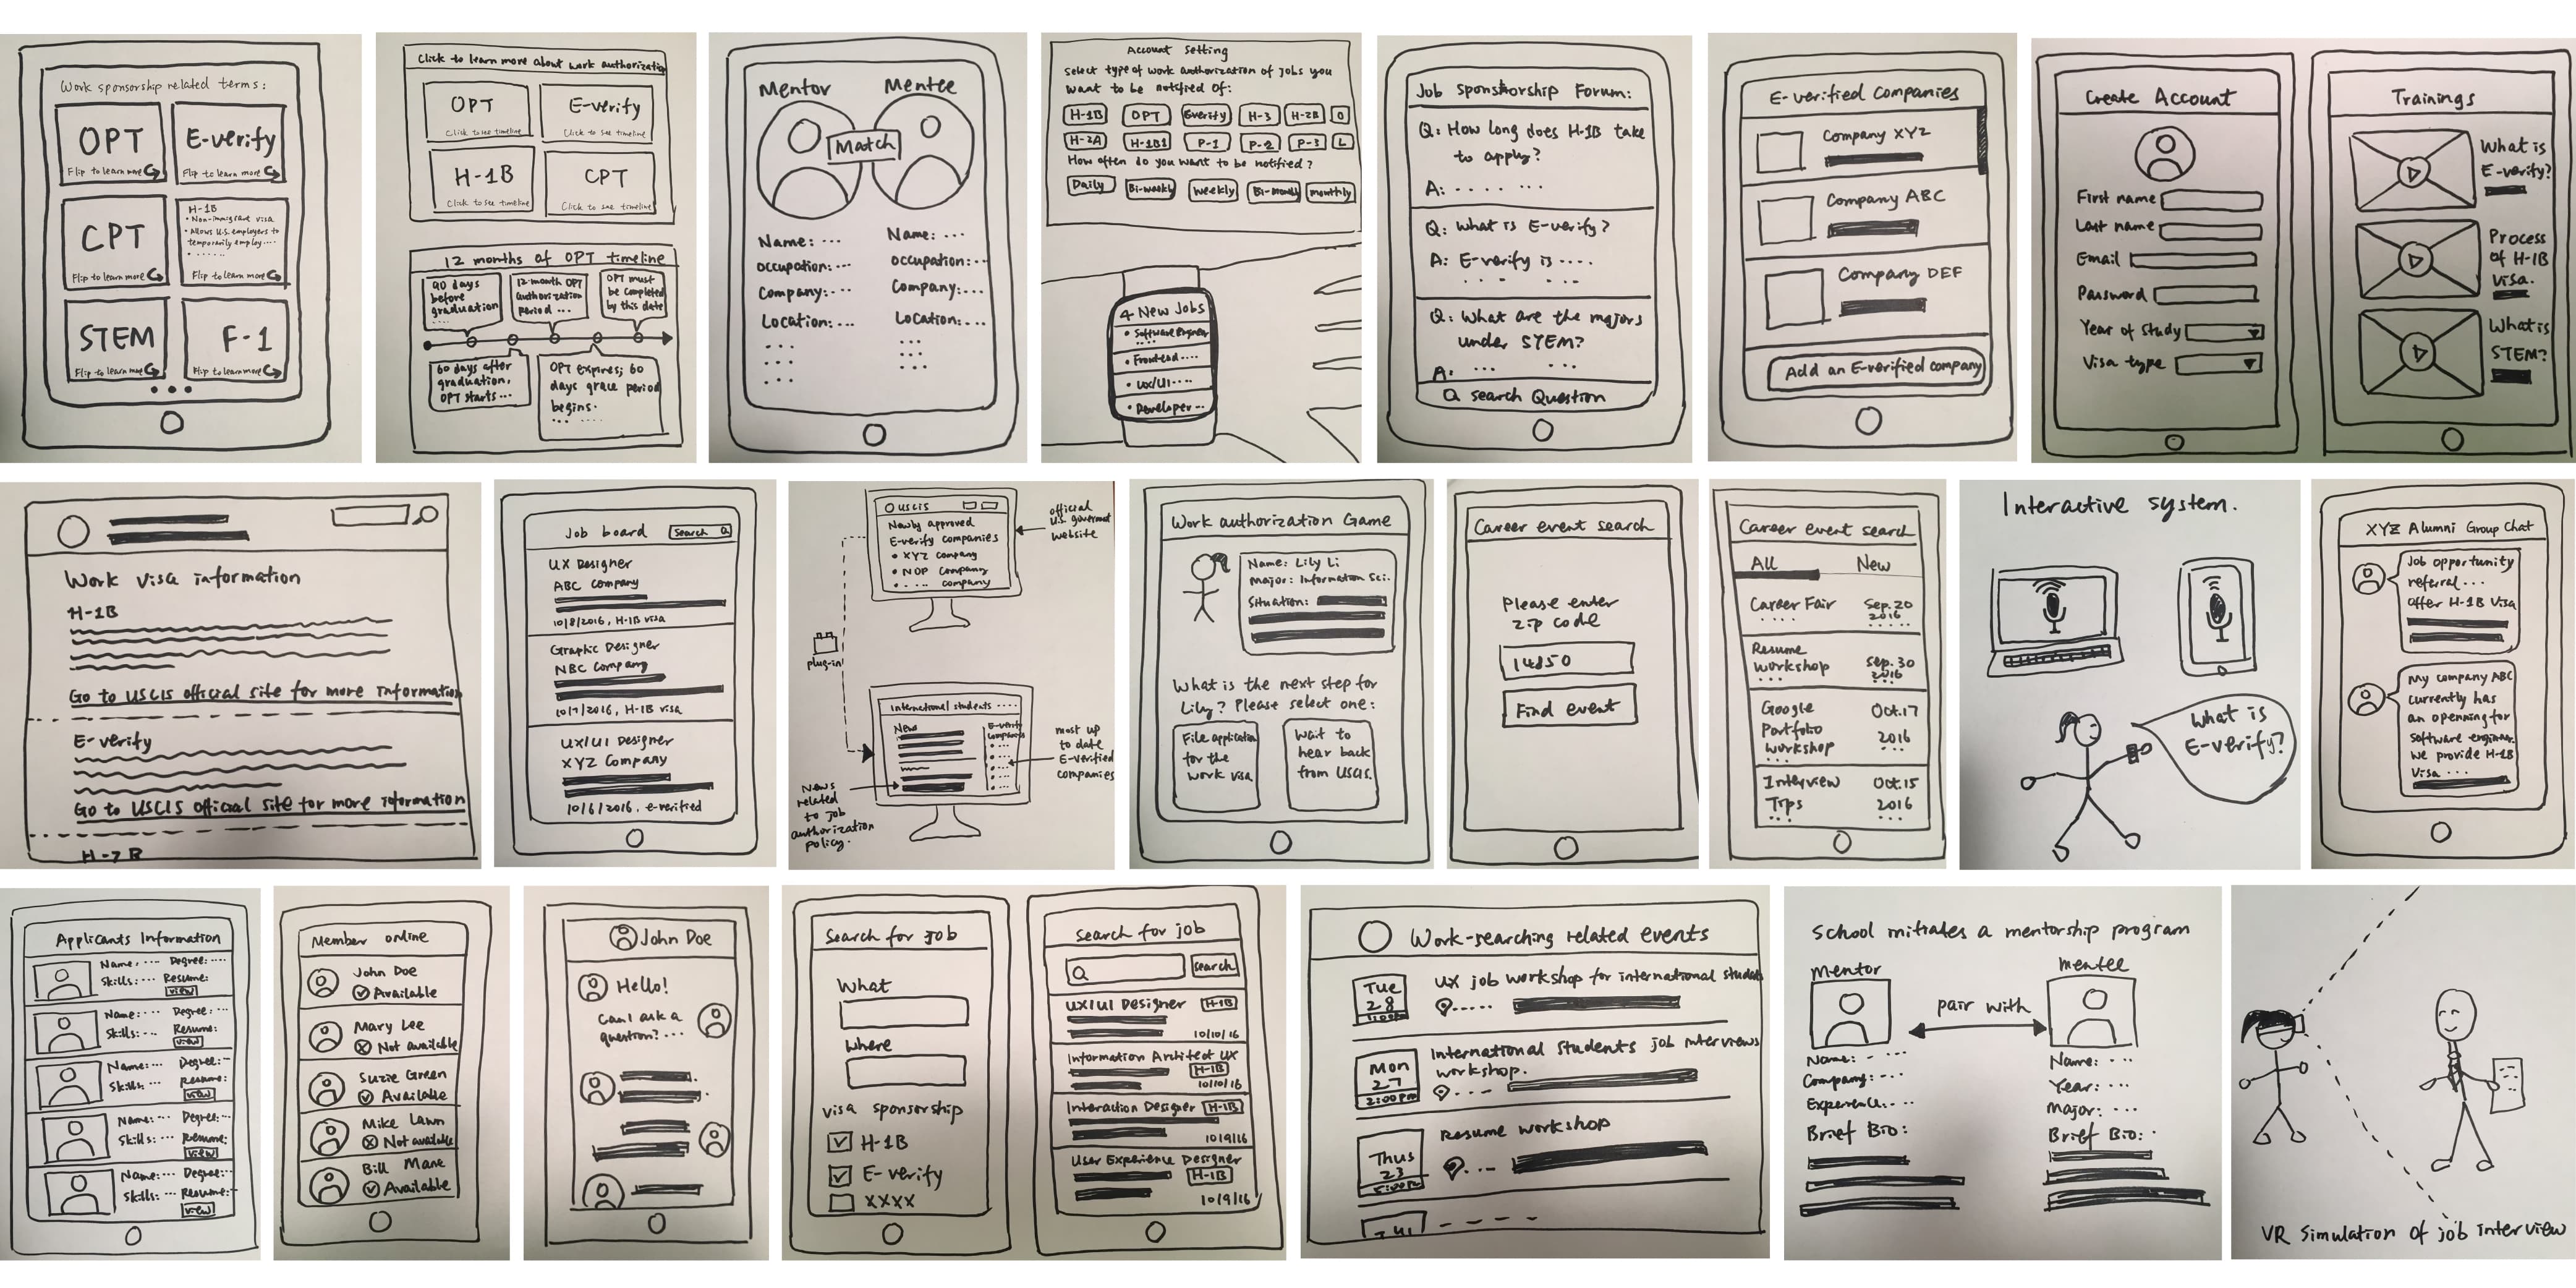 Work sponsorship related terms:
OPT
Flip to learn more
E-verify
Flip to learn more
CPT
Flip to learn more
H-1B
• Non-immigrant visa
• Allows U.S. employers to
temporarily employ....
• ......
Flip to learn more
STEM
Flip to learn more
F-1
Flip to learn more
Click to learn more about work authorization
OPT
Click to see timeline
E-verify
Click to see timeline
H-1B
Click to see timeline
CPT
Click to see timeline
12 months of OPT timeline
90 days
before
graduation
....
12-month OPT
authorization
period ...
OPT must
be completed
by this date
60 days after
graduation,
OPT starts...
OPT expires; 60
days grace period
begins.
Mentor
Mentee
Match
Name: ...
Occupation: ...
Company: ...
Location: ...
Name: ...
Occupation: ...
Company: ...
Location: ...
Account Setting
Select type of work authorization of jobs you
want to be notified of:
H-1B OPT Everify H-3 H-2B O
H-2A H-1B1 P-1 P-2 P-3 L
How often do you want to be notified?
Daily Bi-weekly Weekly Bi-monthly monthly
4 New Jobs
• Software Engineer
• Frontend ....
• UX/UI ....
• Developer ...
Job sponsorship Forum:
Q: How long does H-1B take
to apply?
A: .... ...
Q: What is E-verify?
A: E-verify is ....
Q: What are the majors
under STEM?
A: ... ...
search Question
E-verified Companies
Company XYZ
Company ABC
Company DEF
Add an E-verified company
Create Account
First name
Last name
Email
Password
Year of study
Visa type
Trainings
What is
E-verify?
Process
of H-1B
visa.
What is
STEM?
Work visa information
H-1B
Go to USCIS official site for more information
E-verify
Go to USCIS official site for more information
Job board
Search
UX Designer
ABC Company
10/8/2016, H-1B visa
Graphic Designer
NBC Company
10/7/2016, H-1B visa
UX/UI Designer
XYZ Company
10/6/2016, e-verified
USCIS
Newly approved
E-verify companies
• XYZ company
• NOP company
• .... company
official
U.S. government
website
plug-in
International students ....
News
E-verify
companies
most up
to date
E-verified
companies
News
related
to job
authorization
policy.
Work authorization Game
Name: Lily Li
Major: Information Sci.
Situation:
What is the next step for
Lily? Please select one:
File application
for the
work visa
Wait to
hear back
from USCIS.
Career event search
Please enter
zip code
14850
Find event
Career event search
All
New
Career Fair
Sep.20
2016
Resume
Workshop
Sep.30
2016
Google
Portfolio
Workshop
Oct.17
2016
Interview
Tips
Oct.15
2016
Interactive system.
What is
E-verify?
XYZ Alumni Group Chat
Job opportunity
referral ...
Offer H-1B Visa
My company ABC
currently has
an openning for
software engineer.
We provide H-1B
Visa ...
Applicants Information
Name: ... Degree: ...
Skills: ... Resume:
view
Name: ... Degree: ...
Skills: ... Resume:
view
Name: ... Degree: ...
Skills: ... Resume:
view
Name: ... Degree: ...
Skills: ... Resume:
view
Name: ... Degree: ...
Skills: ... Resume:
view
Member online
John Doe
Available
Mary Lee
Not available
Suzie Green
Available
Mike Lawn
Not available
Bill Mane
Available
John Doe
Hello!
Can I ask a
question? ...
Search for job
What
Where
Visa sponsorship
H-1B
E-verify
XXXX
Search for job
search
UX/UI Designer H-1B
10/10/16
Information Architect UX
H-1B
10/10/16
Interaction Designer H-1B
10/9/16
User Experience Designer
H-1B
10/9/16
Work-searching related events
Tue
28
UX job workshop for international students
Mon
27
2:00pm
International students job interviews
workshop.
Thus
23
5:00pm
Resume workshop
School initiates a mentorship program
mentor
mentee
pair with
Name: ...
Company: ...
Experience: ...
Brief Bio:
Name: ...
Year: ...
Major: ...
Brief Bio:
VR simulation of job interview